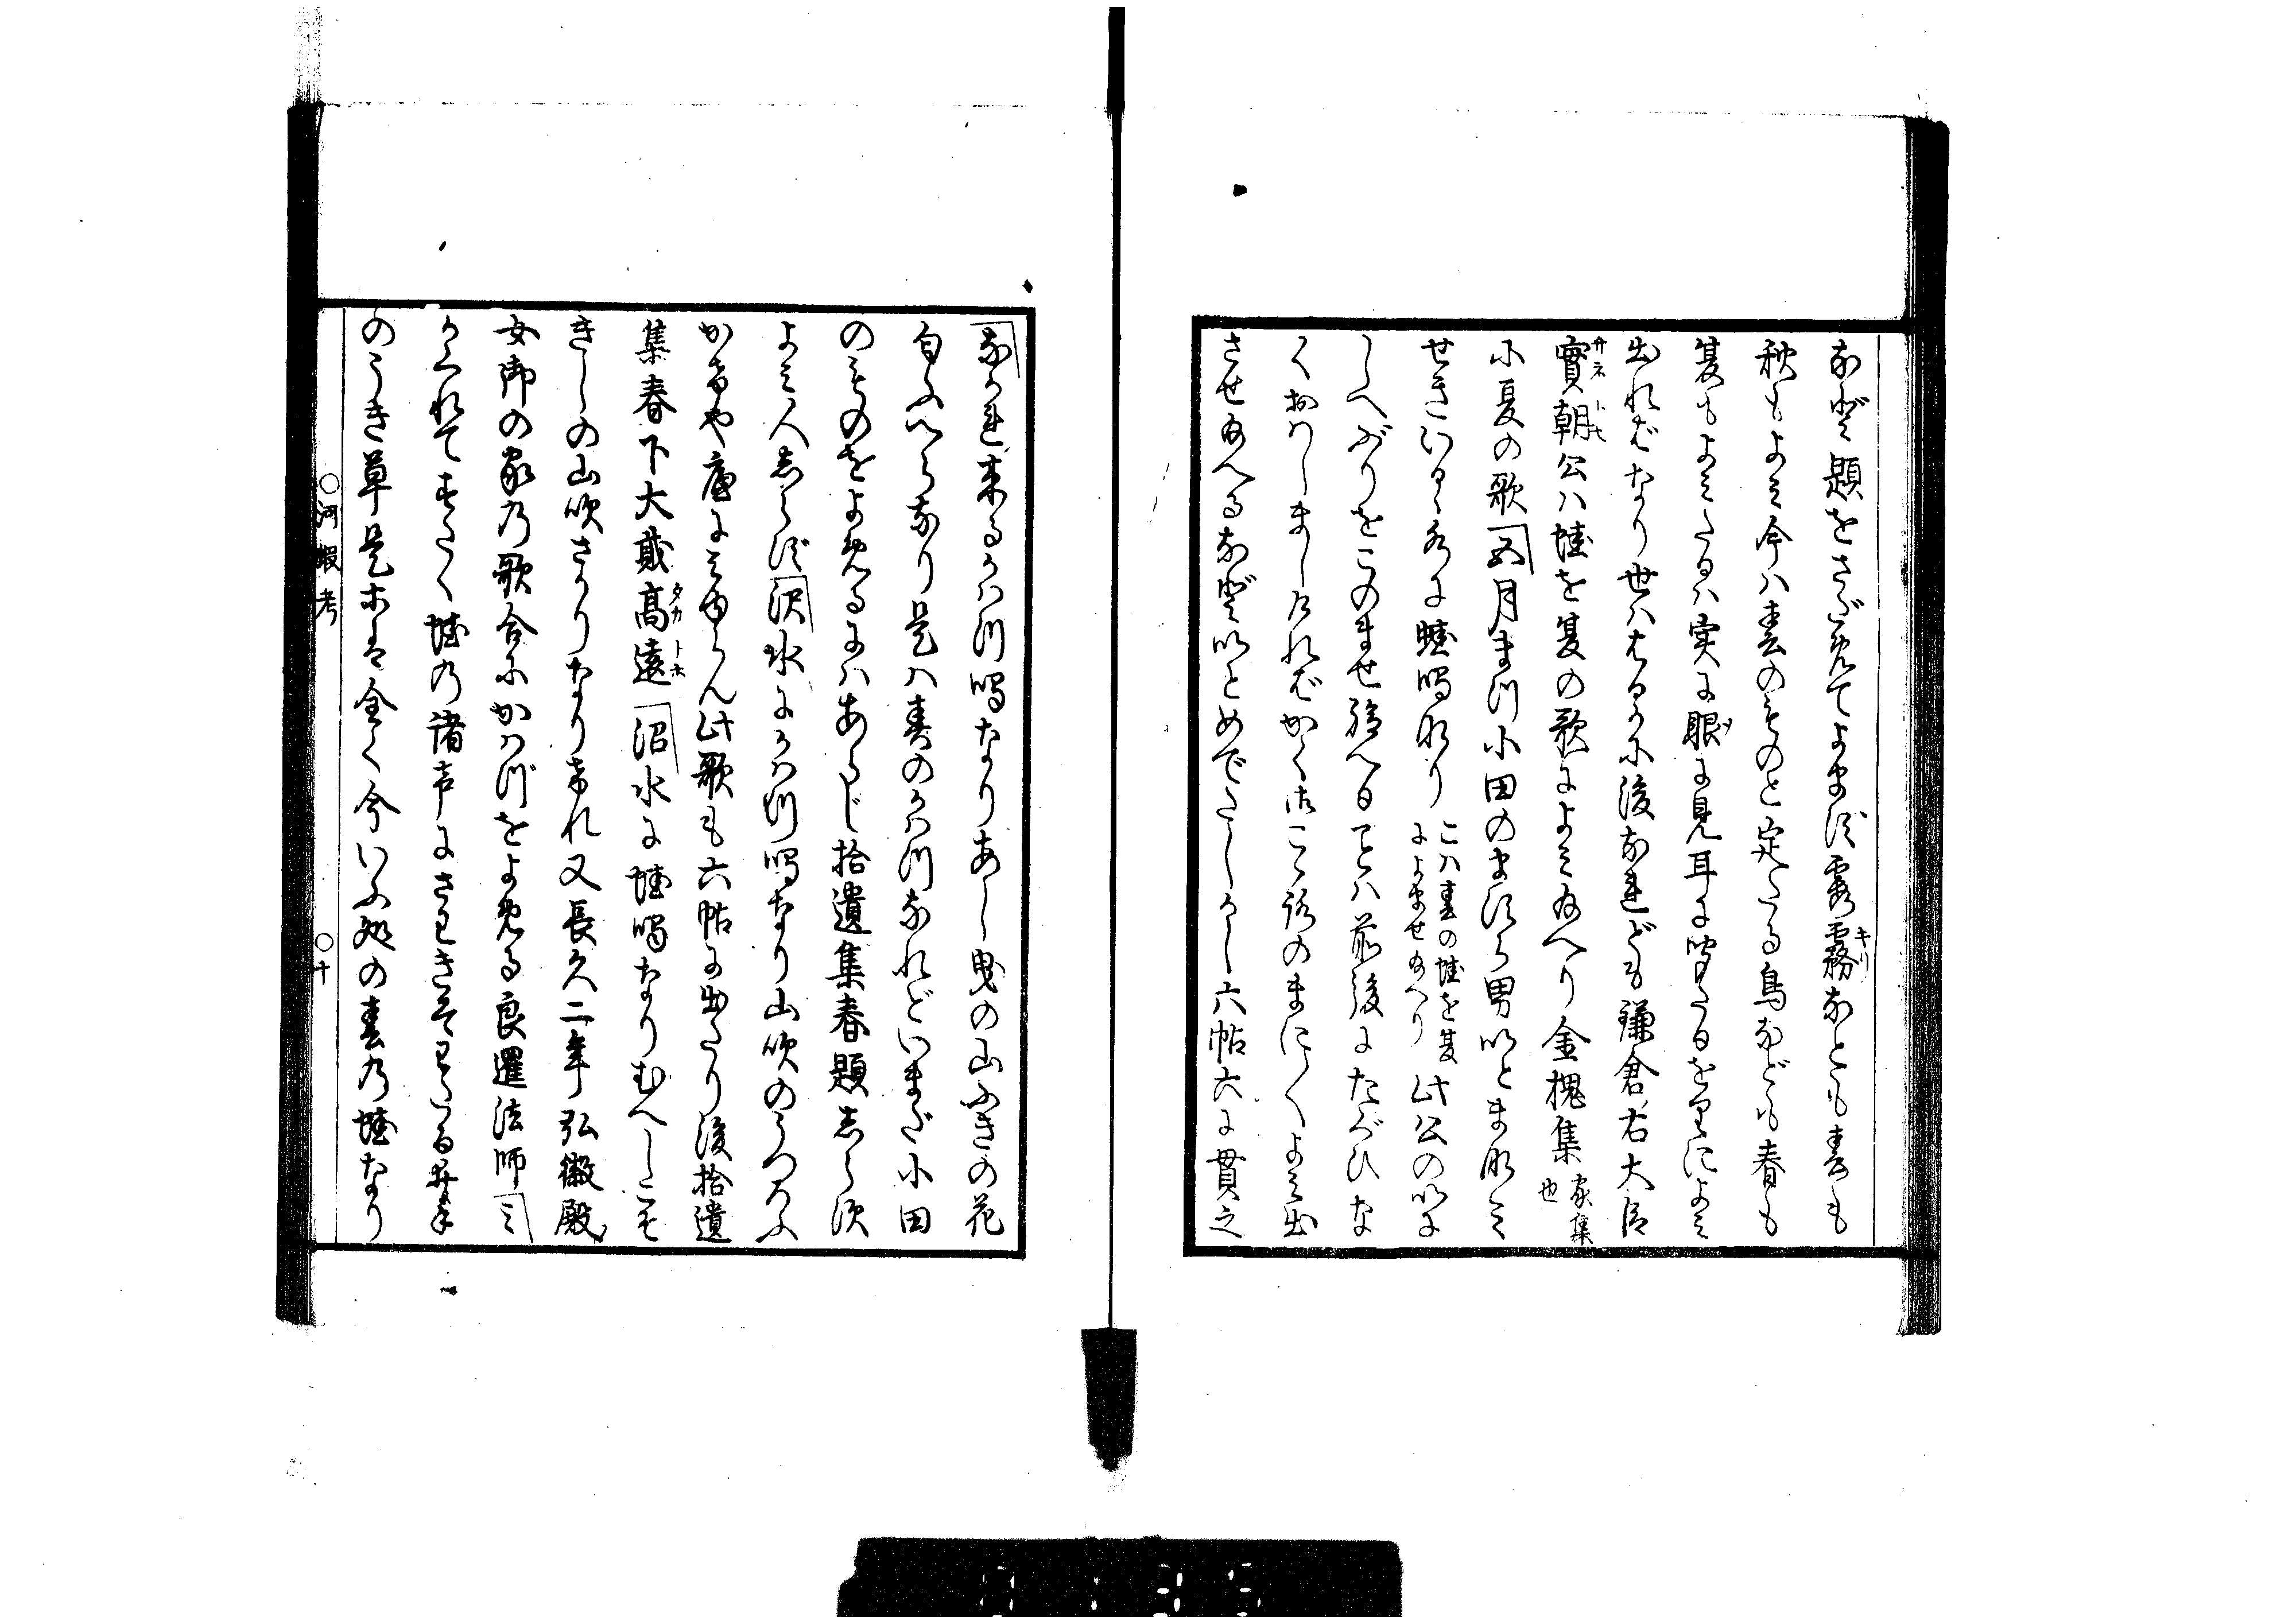 など題をさだめてよまず霞霧なとも春も
秋もよミ今ハ春のものと定たる鳥なども春も
夏もよミたるハ実に眼に見耳に聞たるをもてによミ
出れバなり世ハはるかに後なれども鎌倉右大臣
實朝公ハ蛙を夏の歌によミ給へり金槐集家集也
に夏の歌「五月まつ小田のますら男いとまなミ
せきいるゝ水に蛙鳴なりこハ春の蛙を夏によませ給へり此公のいに
しへぶりをこのませ給へることハ前後にたぐひな
くおハしましけれバかく御こゝろのまにまによミ出
させ給へるなどいとめでたしかし六帖六に貫之
「なかれ来るかハ川鳴なりあし曳の山ふきの花
匂ふへらなり是ハ春のかハ川なれどいまだ小田
のものをよめるにハあらじ拾遺集春題しらす
よミ人しらず「沢水にかハ川鳴なり山吹のうつろふ
かけや底にミゆらん此歌も六帖に出たり後拾遺
集春下大貳高遠「沼水に蛙鳴なりむへしこそ
きしの山吹さかりなりけれ又長久二年弘徽殿
女御の家乃歌合にかハ川をよめる良暹法師「ミ
かくれてすたく蛙の諸声にさわきそわたる井手
のうき草是等は全く今いふ処の春乃蛙なり
○河蝦考
○十